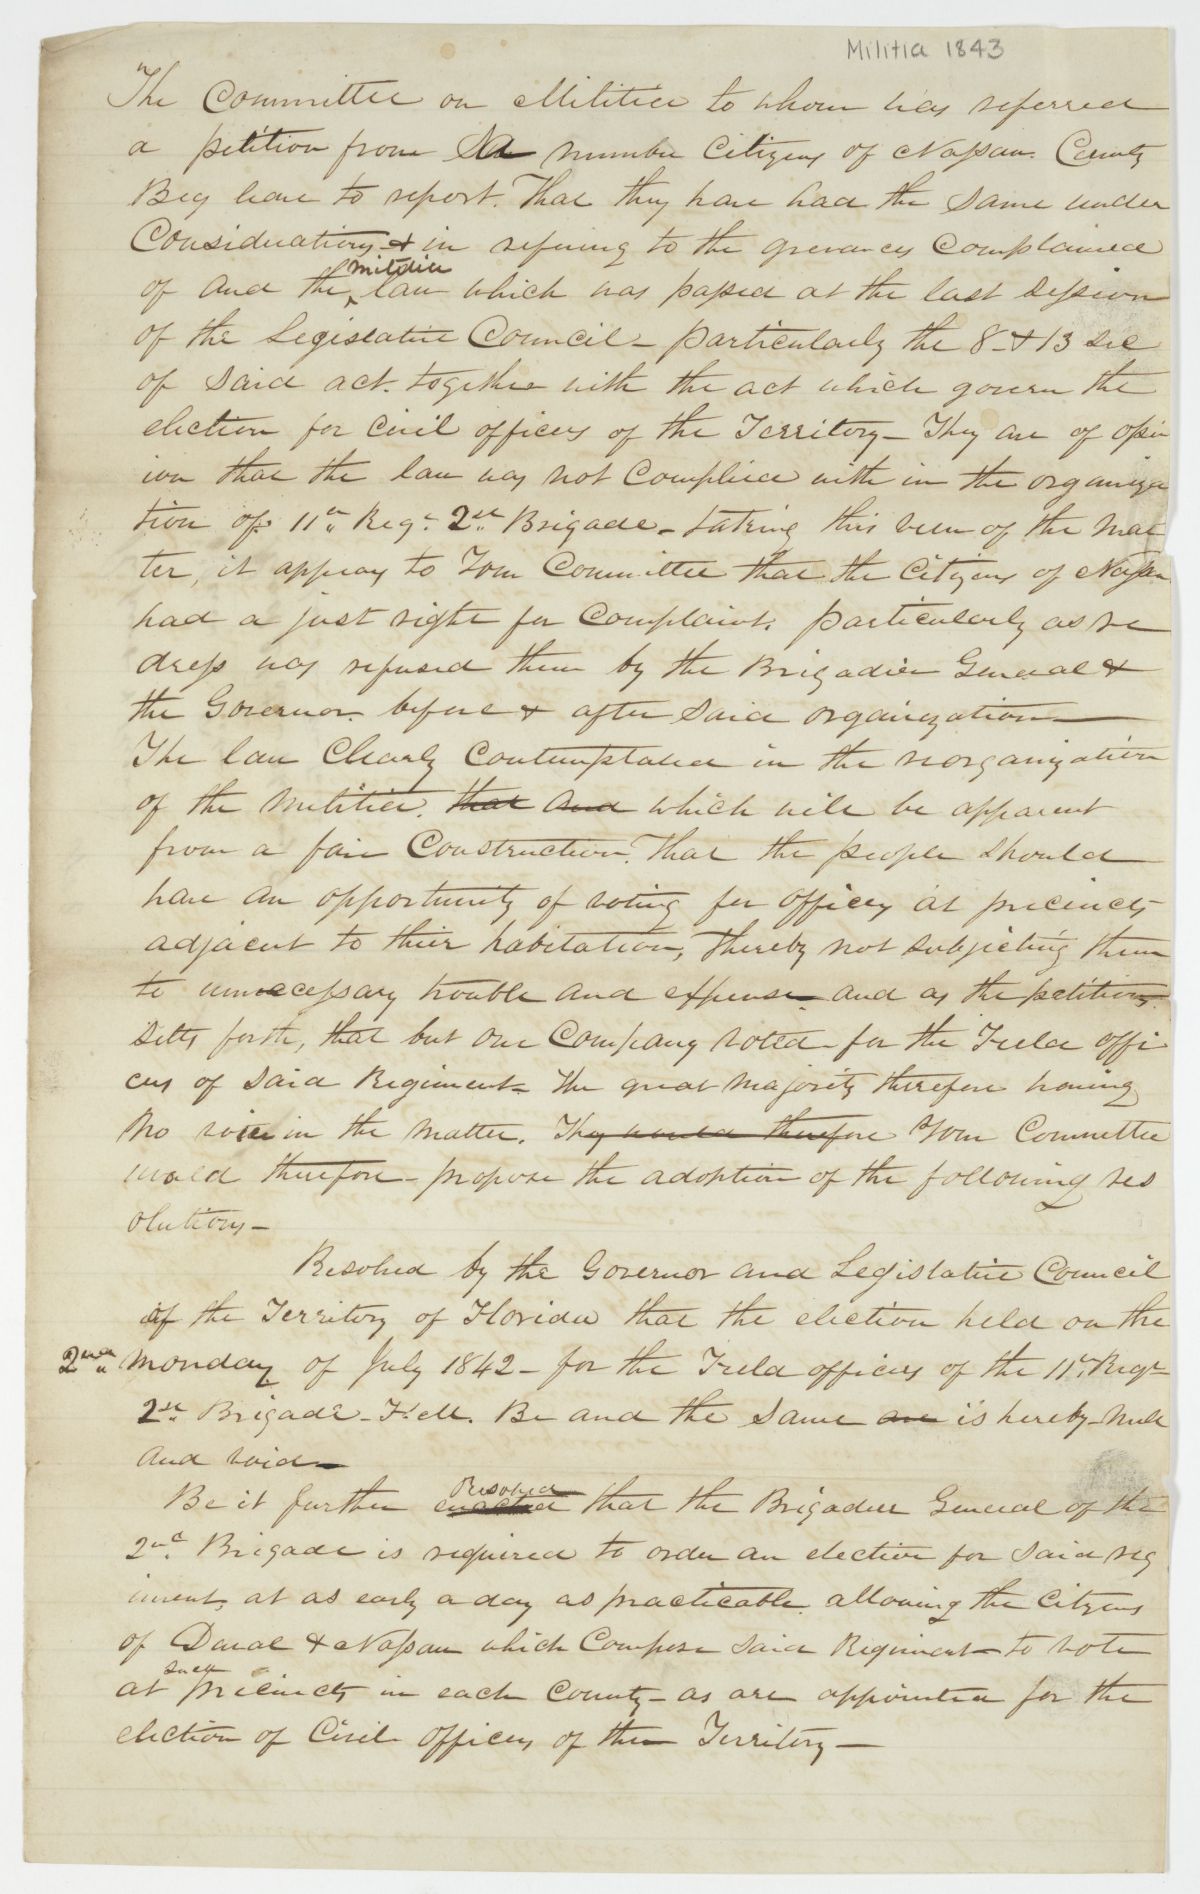 Militia 1843
The Committee on Militia to whom was referred
a petition from A number Citizens of Nassau County
Beg leave to report. That they have had the same under
Consideration & in refering to the grevances Complained
militia
of and the law which was passed at the last session
of the Legislative Council – particularly the 8 & 13 sec
of said act. together with the act which govern the
election for civil officers of the Territory – They are of opin
ion that the law was not Complied with in the organiza
tion of 11th Regt 2nd Brigade – taking this view of the mat
ter, it appears to Your Committee that the Citizens of Nassau
had a just right for Complaint. particularly as re
dress was refused them by the Brigadier General &
the Governor before & after said organization —
The law Clearly Contemplated in the reorganization
of the militia. that and which will be apparent
from a fair Construction. That the people should
have an opportunity of voting for officers at precincts
adjacent to thier habitation, thereby not subjecting them
to unnecessary trouble and expense – and as the petitions
setts forth, that but one Company voted – for the Field offi
cers of said Regiment – the great majority therefore having
no voice in the matter. They would therefore Your Committee
would therefore – propose the adoption of the following res
olutions –
Resolved by the Governor and Legislative Council
of the Territory of Florida that the election held on the
2nd monday of July 1842 – for the Field officers of the 11th Regt
2nd Brigade – F. M. Be and the same are is hereby – null
and void –
Resolved
Be it further enacted that the Brigadier General of the
2nd Brigade is required to order an election for said reg
iment, at as early a day as practicable. allowing the Citizens
of Duval & Nassau which Compose said Regiment – to vote
such
at precincts in each County – as are appointed for the
election of Civil officers of the Territory –